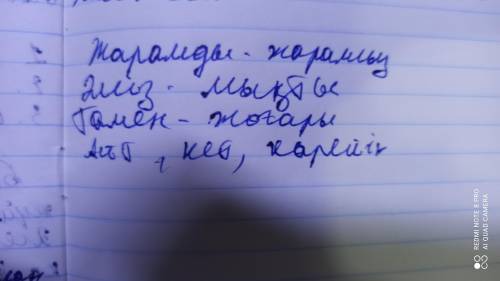 Жарамды - жарамсыз
Әлсіз - мықты
Төмен - жоғары
кет, көрейік
REDMI NOTE 8 PRO
AI QUAD CAMERA